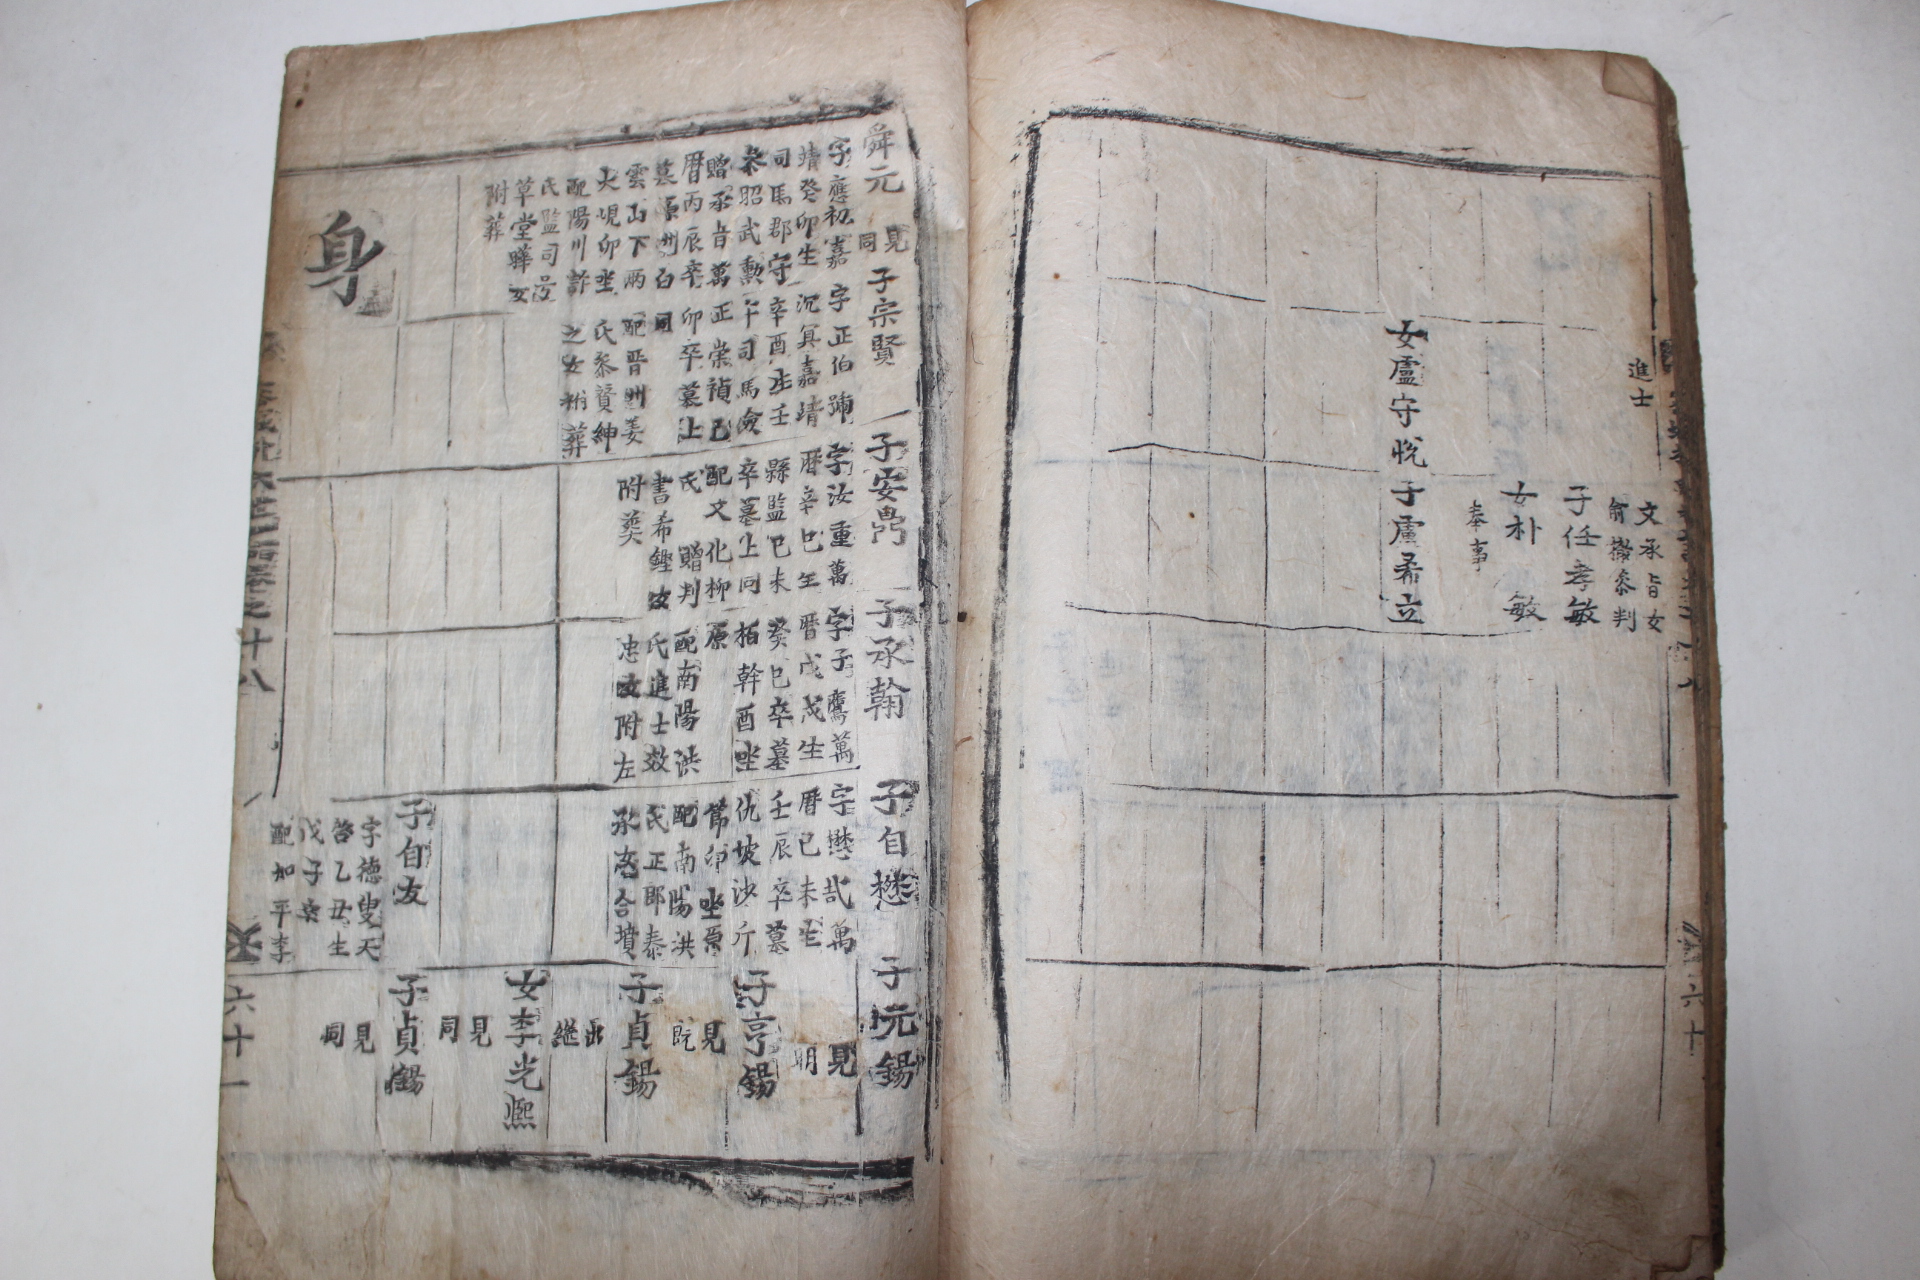 進士
文承旨女
俞㯙參判
子任孝敏
女朴 敏
奉事
女盧守悅
子盧希立
六十
舜元
見
同
字應初嘉
靖癸卯生
司馬郡守
參昭武勳
贈承旨萬
曆丙辰卒
墓原州白
雲山下兩
大峴卯坐
配陽川許
氏監司號
草堂曄女
附葬
身
子宗賢
字正伯號
沉冥嘉靖
辛酉生壬
午司馬僉
正崇禎己
卯卒墓上
同
配晋州姜
氏參贊紳
之女祔葬
子安禼
字汝重萬
曆辛巳生
縣監己未
卒墓上同
配文化柳
氏 贈判
書希鏗女
附葬
子承翰
字子鷹萬
曆戊戌生
癸巳卒墓
原柏幹酉坐
配南陽洪
氏進士效
忠女附左
子自懋
字懋哉萬
曆己未生
壬辰卒墓
仇坡沙斤
帶卯坐原
配南陽洪
氏正郎泰
承女合墳
子自友
字德叟天
啓乙丑生
戊子卒
配知平李
子元錫
見
明
子亨錫
見
既
子貞錫
出
繼
女李光熙
見
同
子貞錫
見
同
卷之十八
六十一